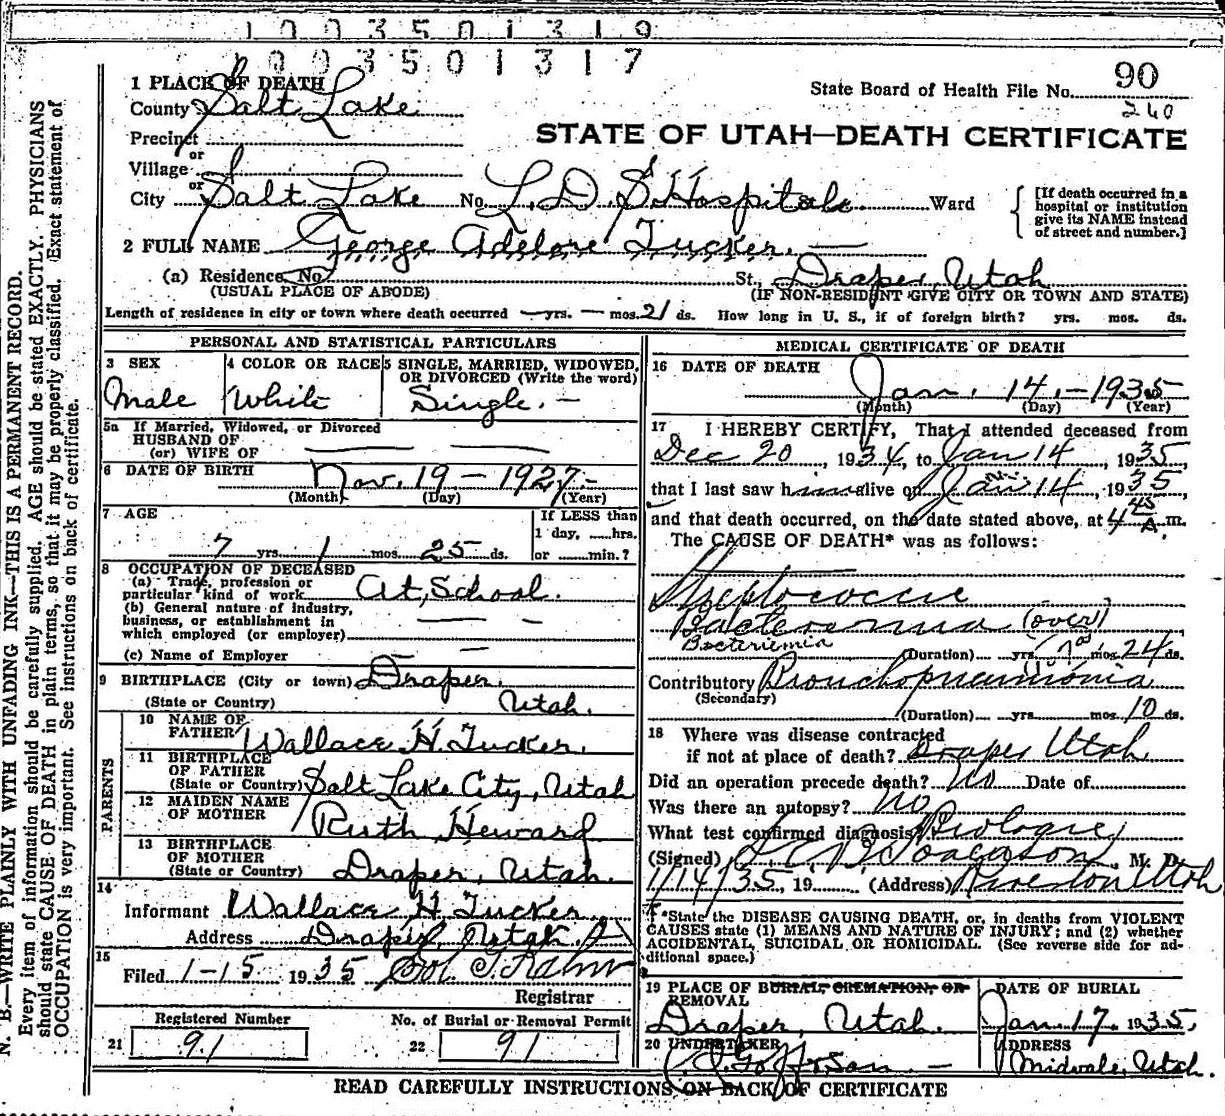 1 0 0 3 5 0 1 3 1 9
0 0 3 5 0 1 3 1 7
1 PLACE OF DEATH
State Board of Health File No. 90
240
County Salt Lake
STATE OF UTAH—DEATH CERTIFICATE
Precinct
or
Village
or
City Salt Lake No. L. D. S. Hospital. Ward
[If death occurred in a hospital or institution give its NAME instead of street and number.]
2 FULL NAME George Adelore Tucker. —
(a) Residence No. St., Draper, Utah
(USUAL PLACE OF ABODE) (IF NON-RESIDENT GIVE CITY OR TOWN AND STATE)
Length of residence in city or town where death occurred — yrs. — mos. 21 ds. How long in U. S., if of foreign birth? yrs. mos. ds.
PERSONAL AND STATISTICAL PARTICULARS
3 SEX
Male
4 COLOR OR RACE
White
5 SINGLE, MARRIED, WIDOWED, OR DIVORCED (Write the word)
Single. —
5a If Married, Widowed, or Divorced
HUSBAND OF
(or) WIFE OF
6 DATE OF BIRTH Nov. 19 — 1927. —
(Month) (Day) (Year)
7 AGE
7 yrs. 1 mos. 25 ds.
If LESS than
1 day, ......hrs.
or ......min.?
8 OCCUPATION OF DECEASED
(a) Trade, profession or
particular kind of work At School.
(b) General nature of industry,
business, or establishment in
which employed (or employer)
(c) Name of Employer
9 BIRTHPLACE (City or town) Draper.
(State or Country) Utah.
PARENTS
10 NAME OF
FATHER Wallace H. Tucker.
11 BIRTHPLACE
OF FATHER
(State or Country) Salt Lake City, Utah
12 MAIDEN NAME
OF MOTHER Ruth Heward
13 BIRTHPLACE
OF MOTHER
(State or Country) Draper, Utah.
14
Informant Wallace H. Tucker
Address Draper, Utah.
15
Filed 1-15 1935
Registrar
Registered Number
21 91
No. of Burial or Removal Permit
22 91
MEDICAL CERTIFICATE OF DEATH
16 DATE OF DEATH
Jan. 14. - 1935
(Month) (Day) (Year)
17 I HEREBY CERTIFY, That I attended deceased from
Dec 20, 1934, to Jan 14, 1935,
that I last saw him alive on Jan 14, 1935,
and that death occurred, on the date stated above, at 4 45 A. m.
The CAUSE OF DEATH* was as follows:
Streptococcic
Bacteremia (over)
Bacteriemia
(Duration) yrs. mos. 24 ds.
Contributory Bronchopneumonia
(Secondary)
(Duration) yrs. mos. 10 ds.
18 Where was disease contracted
if not at place of death? Draper Utah
Did an operation precede death? No Date of
Was there an autopsy? No
What test confirmed diagnosis?
(Signed) M. D.
1/14/35, 19 (Address) Riverton Utah
*State the DISEASE CAUSING DEATH, or, in deaths from VIOLENT
CAUSES state (1) MEANS AND NATURE OF INJURY; and (2) whether
ACCIDENTAL, SUICIDAL OR HOMICIDAL. (See reverse side for additional space.)
19 PLACE OF BURIAL, CREMATION, OR
REMOVAL
Draper, Utah.
DATE OF BURIAL
Jan. 17. 1935.
20 UNDERTAKER
Goff & Son. —
ADDRESS
Midvale, Utah.
READ CAREFULLY INSTRUCTIONS ON BACK OF CERTIFICATE
N. B.—WRITE PLAINLY WITH UNFADING INK—THIS IS A PERMANENT RECORD.
Every item of information should be carefully supplied. AGE should be stated EXACTLY. PHYSICIANS
should state CAUSE OF DEATH in plain terms, so that it may be properly classified. Exact statement of
OCCUPATION is very important. See instructions on back of certificate.